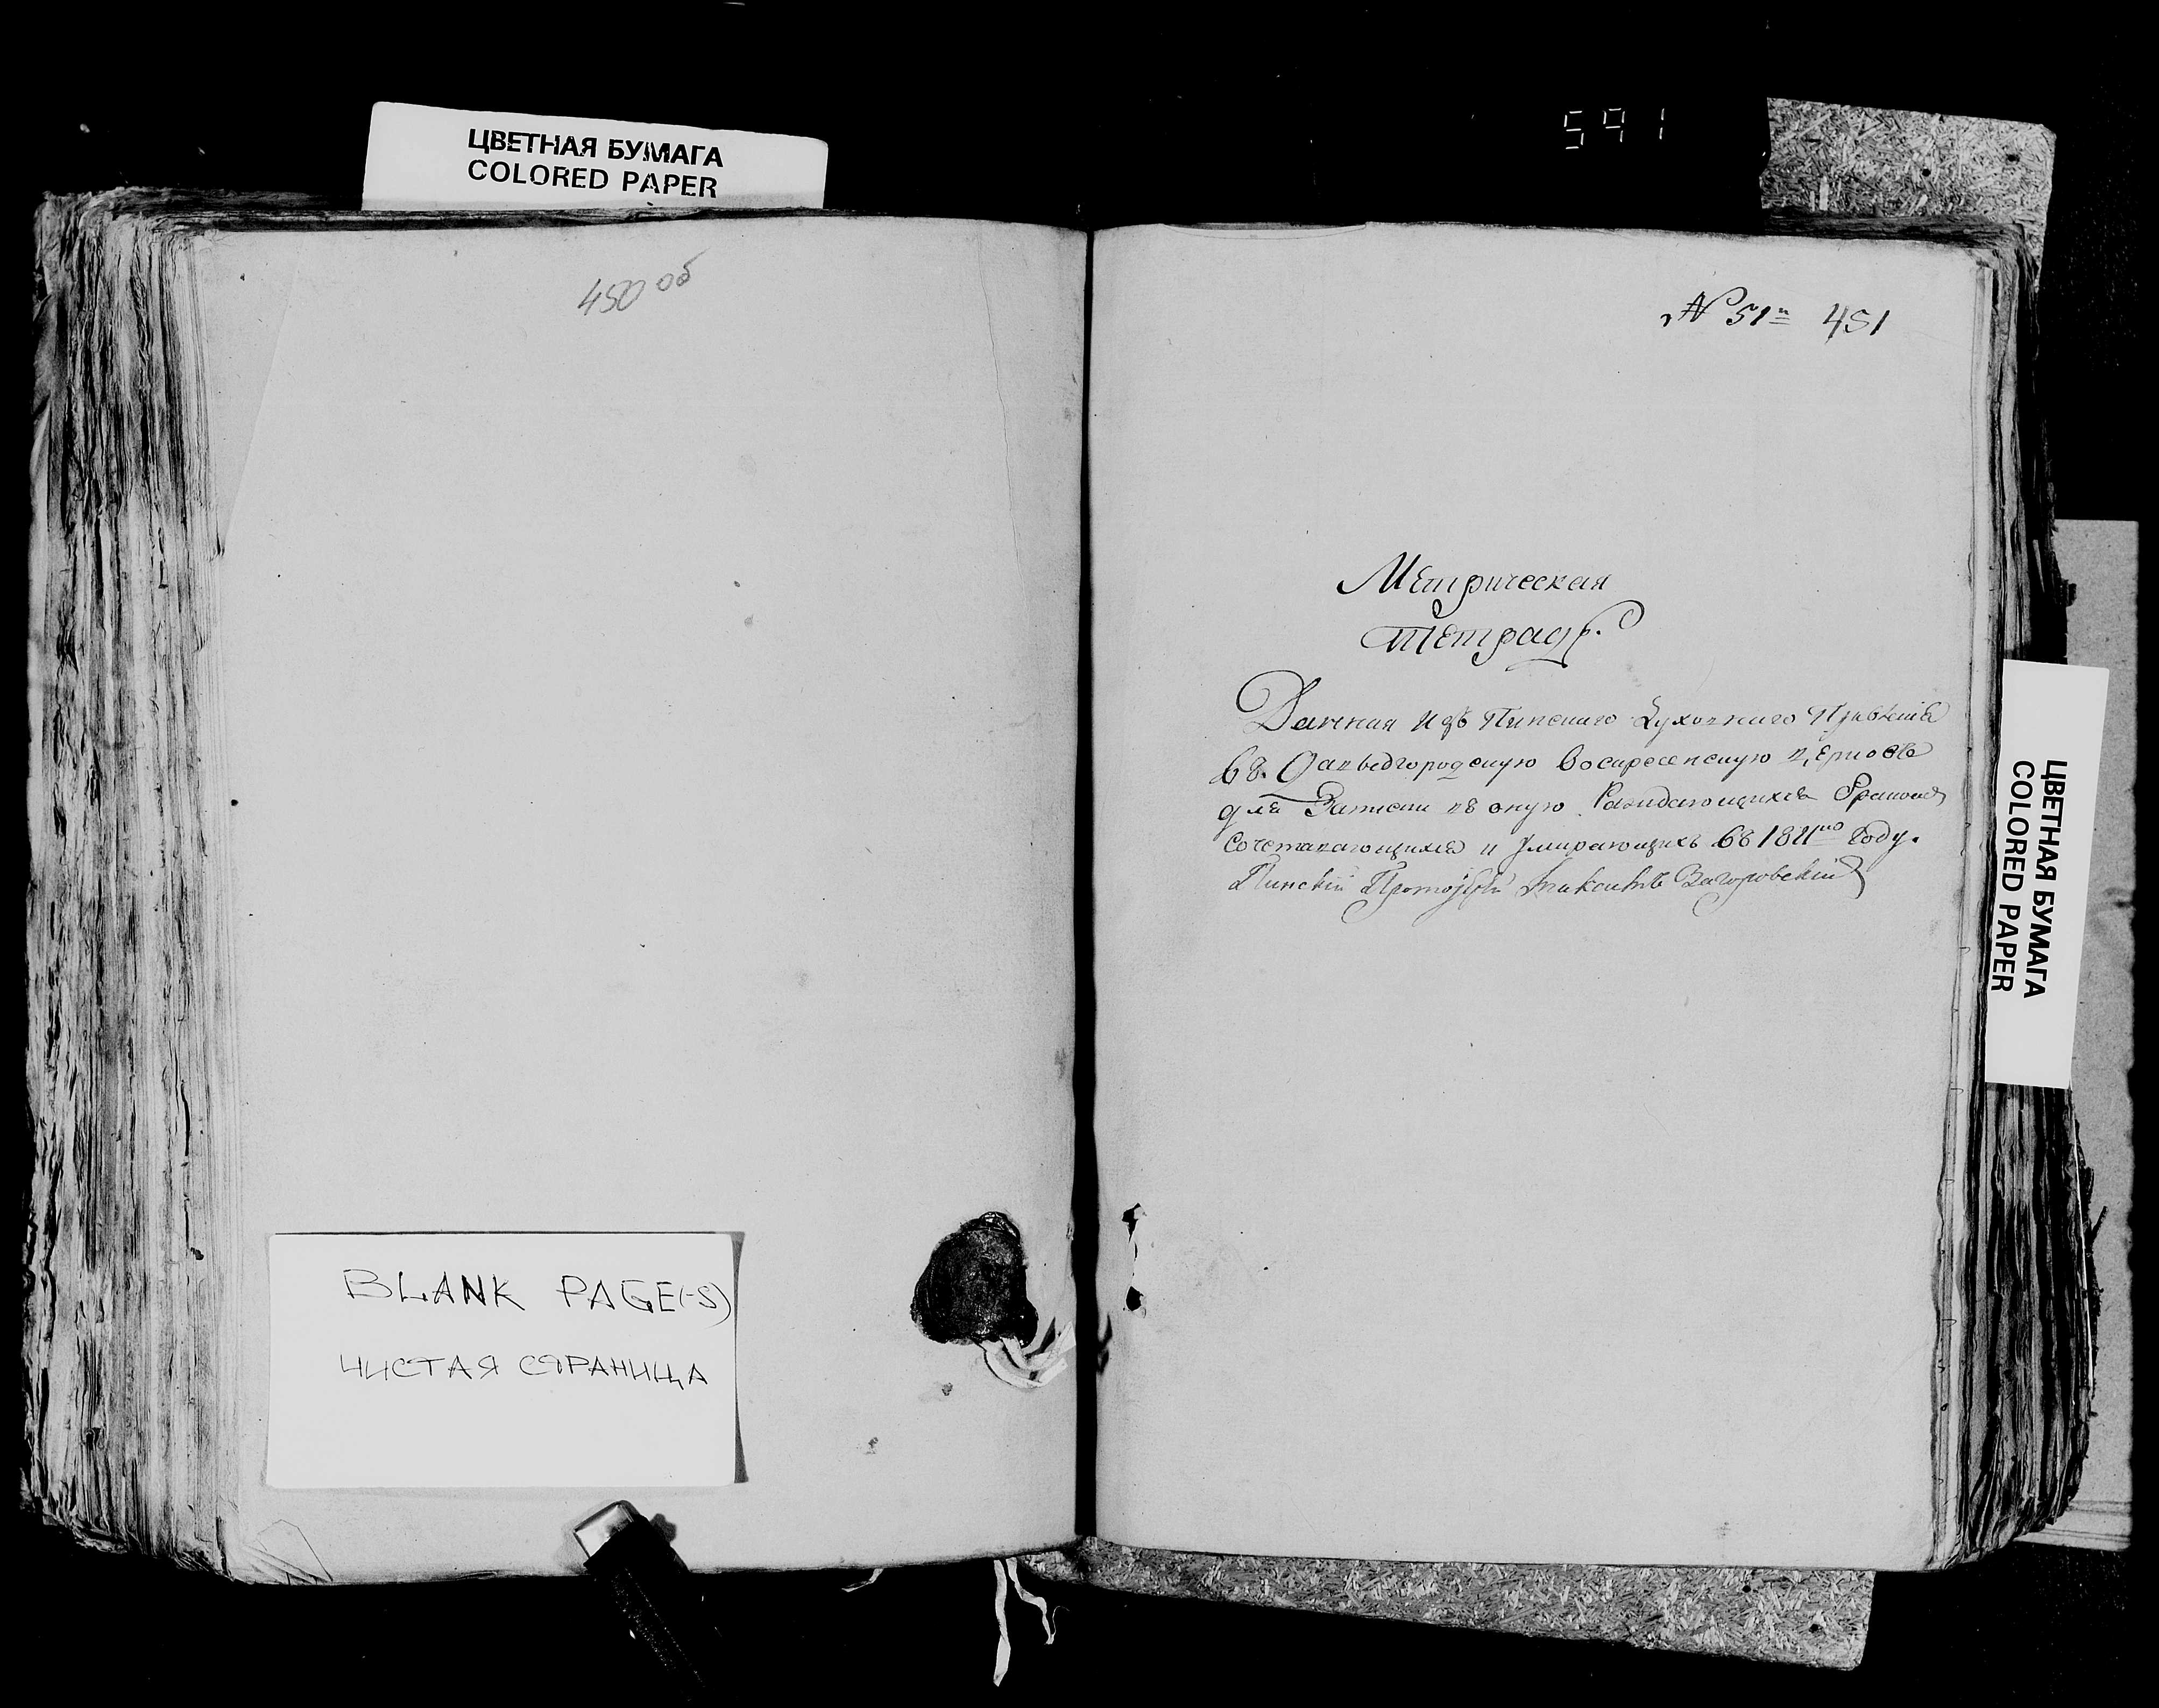 ЦВЕТНАЯ БУМАГА
COLORED PAPER
591
450 об
№ 51й 451
Метрическая
тетрадь.
Данная изъ Пинскаго Духовнаго Правленія
въ Давыдгородскую Воскресенскую церковь
для Записки въ оную Раждающихся Бракомъ
сочетавающихся и умирающихъ въ году.
Пинскій Загоровскій
ЦВЕТНАЯ БУМАГА
COLORED PAPER
BLANK PAGE(-S)
ЧИСТАЯ СТРАНИЦА